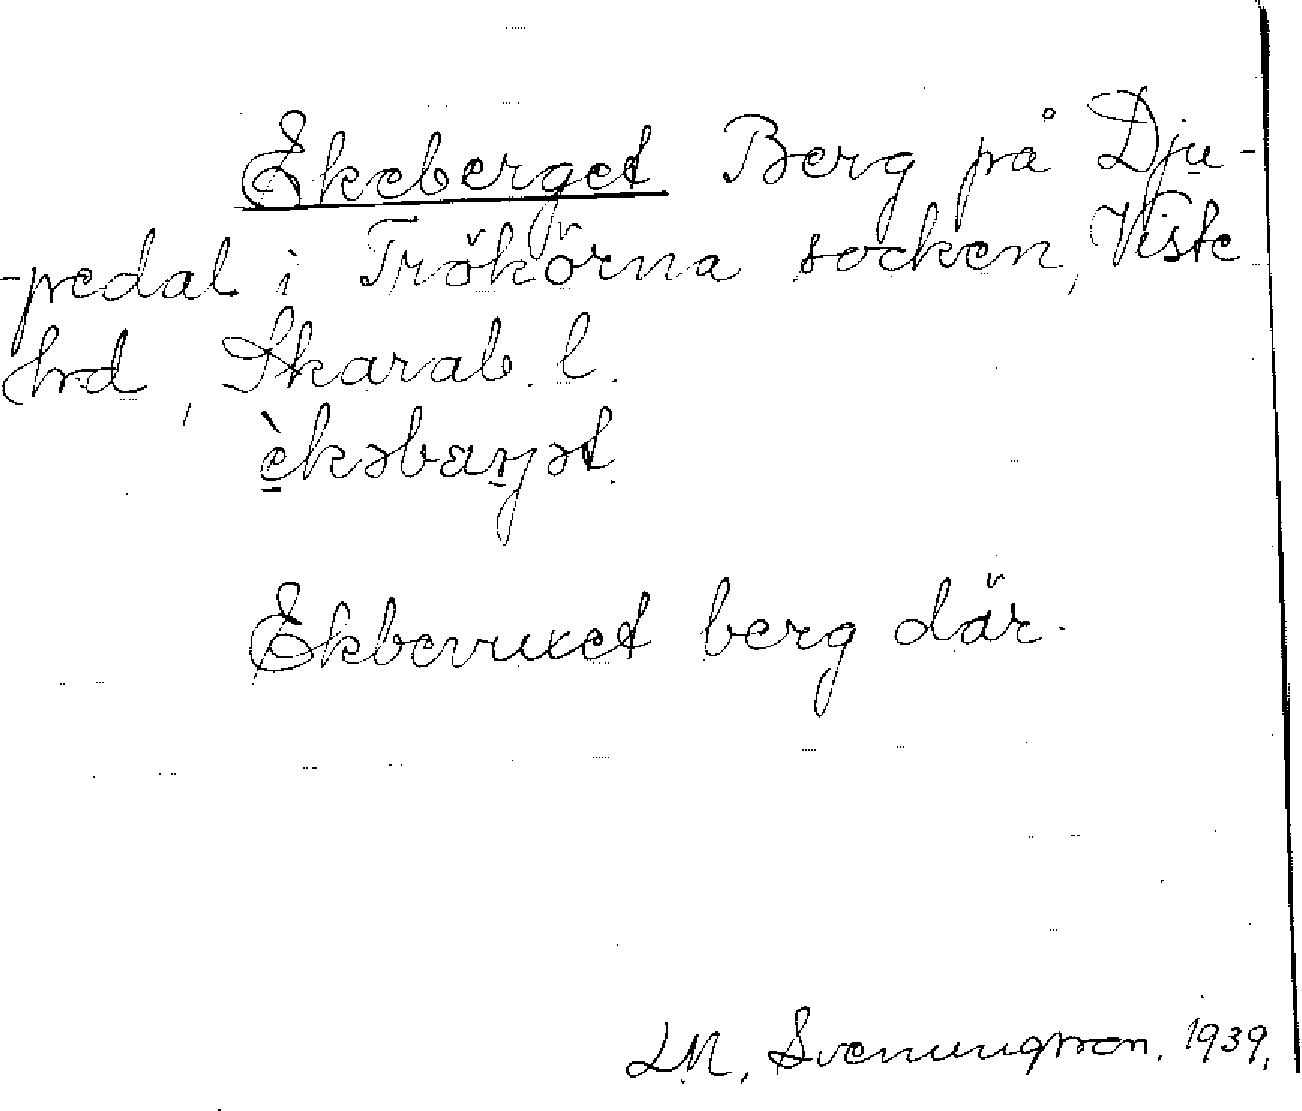 Ekeberget Berg på Dju-
-pedal i Trökörna socken, Viste
hrd, Skarab. l.
è̱kəbaŋət.
Ekbevuxet berg där.
LM. Svenungsson. 1939.